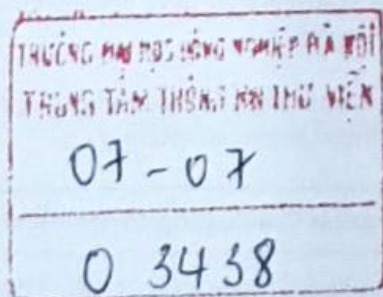 TRƯỜNG ĐẠI HỌC NÔNG NGHIỆP HÀ NỘI
TRUNG TÂM THÔNG TIN THƯ VIỆN
07-07
0 3438